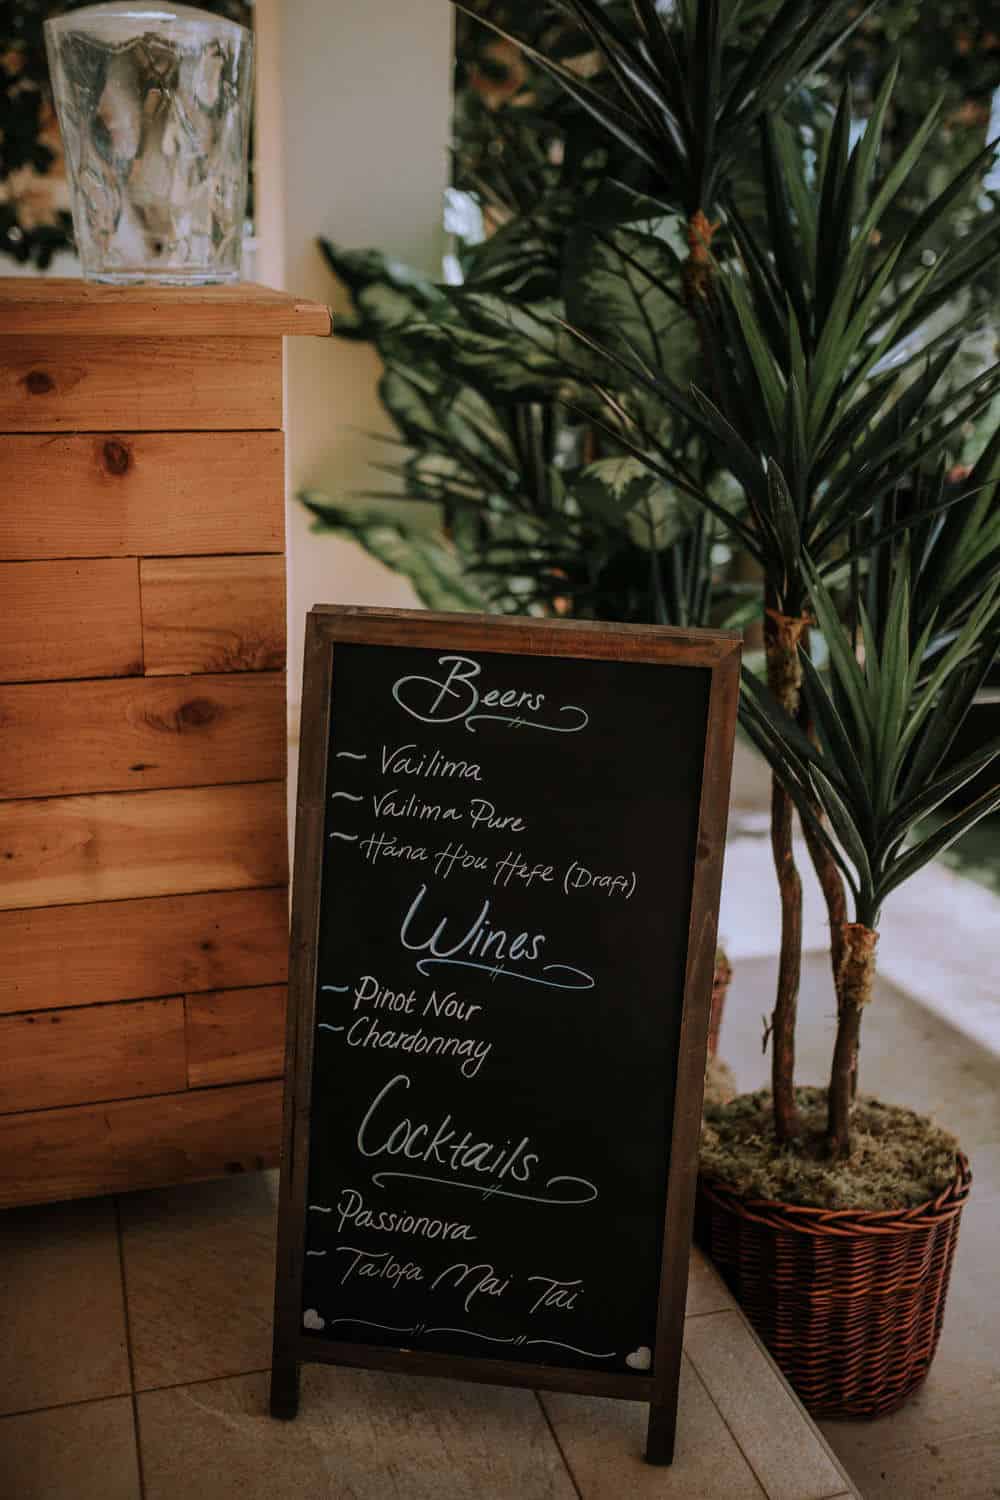 Beers
~ Vailima
~ Vailima Pure
~ Hana Hou Hefe (Draft)
Wines
~ Pinot Noir
~ Chardonnay
Cocktails
~ Passionova
~ Talofa Mai Tai